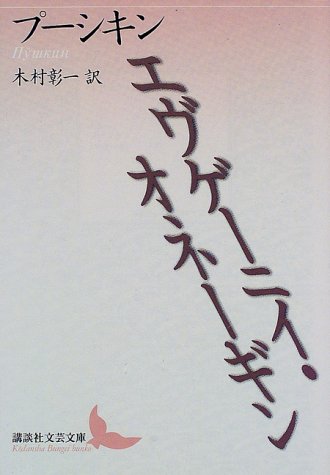 プーシキン
Пушкин
木村彰一 訳
エヴゲーニイ・
オネーギン
講談社文芸文庫
Kodansha Bungei bunko